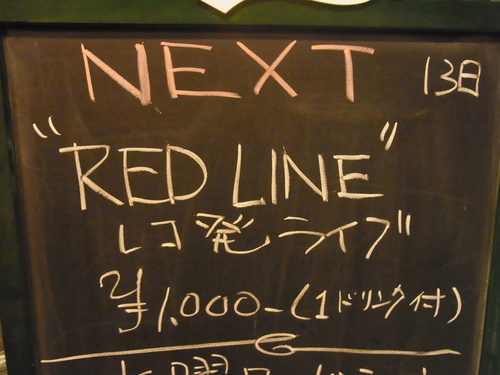 NEXT 13日
"RED LINE"
レコ発ライブ
¥1,000-(1ドリンク付)